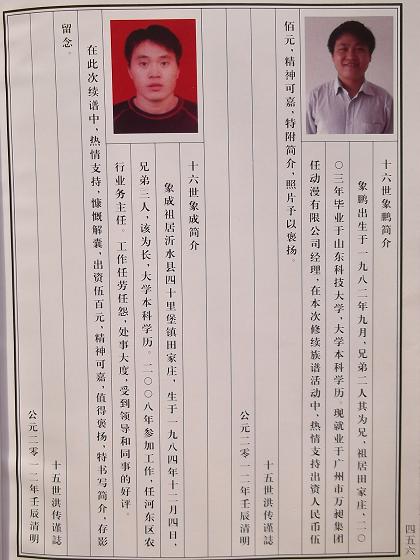 十六世象鹏简介
象鹏出生于一九八二年九月，兄弟二人其为兄，祖居田家庄，二〇
〇三年毕业于山东科技大学，大学本科学历。现就业于广州市万昶集团
任动漫有限公司经理，在本次修续族谱活动中，热情支持出资人民币伍
佰元，精神可嘉，特附简介，照片予以褒扬。
十五世洪传谨誌
公元二零一二年壬辰清明
十六世象成简介
象成祖居沂水县四十里堡镇田家庄，生于一九八四年十二月四日，
兄弟三人，该为长，大学本科学历。二〇〇八年参加工作，任河东区农
行业务主任。工作任劳任怨，处事大度，受到领导和同事的好评。
在此次续谱中，热情支持，慷慨解囊，出资伍百元，精神可嘉，值得褒扬，特书写简介，存影
留念。
十五世洪传谨誌
公元二零一二年壬辰清明
四五六